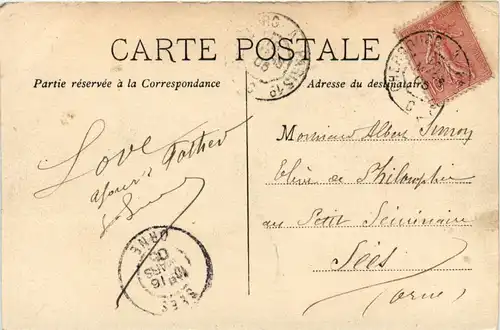 CARTE POSTALE
Partie réservée à la Correspondance
Adresse du destinataire
Love
Your's Father
Monsieur Albert Simon
Elève de Philosophie
au Petit Séminaire
Sées
(Orne)
CHERBOURG
SÉES
ORNE
16
MARS